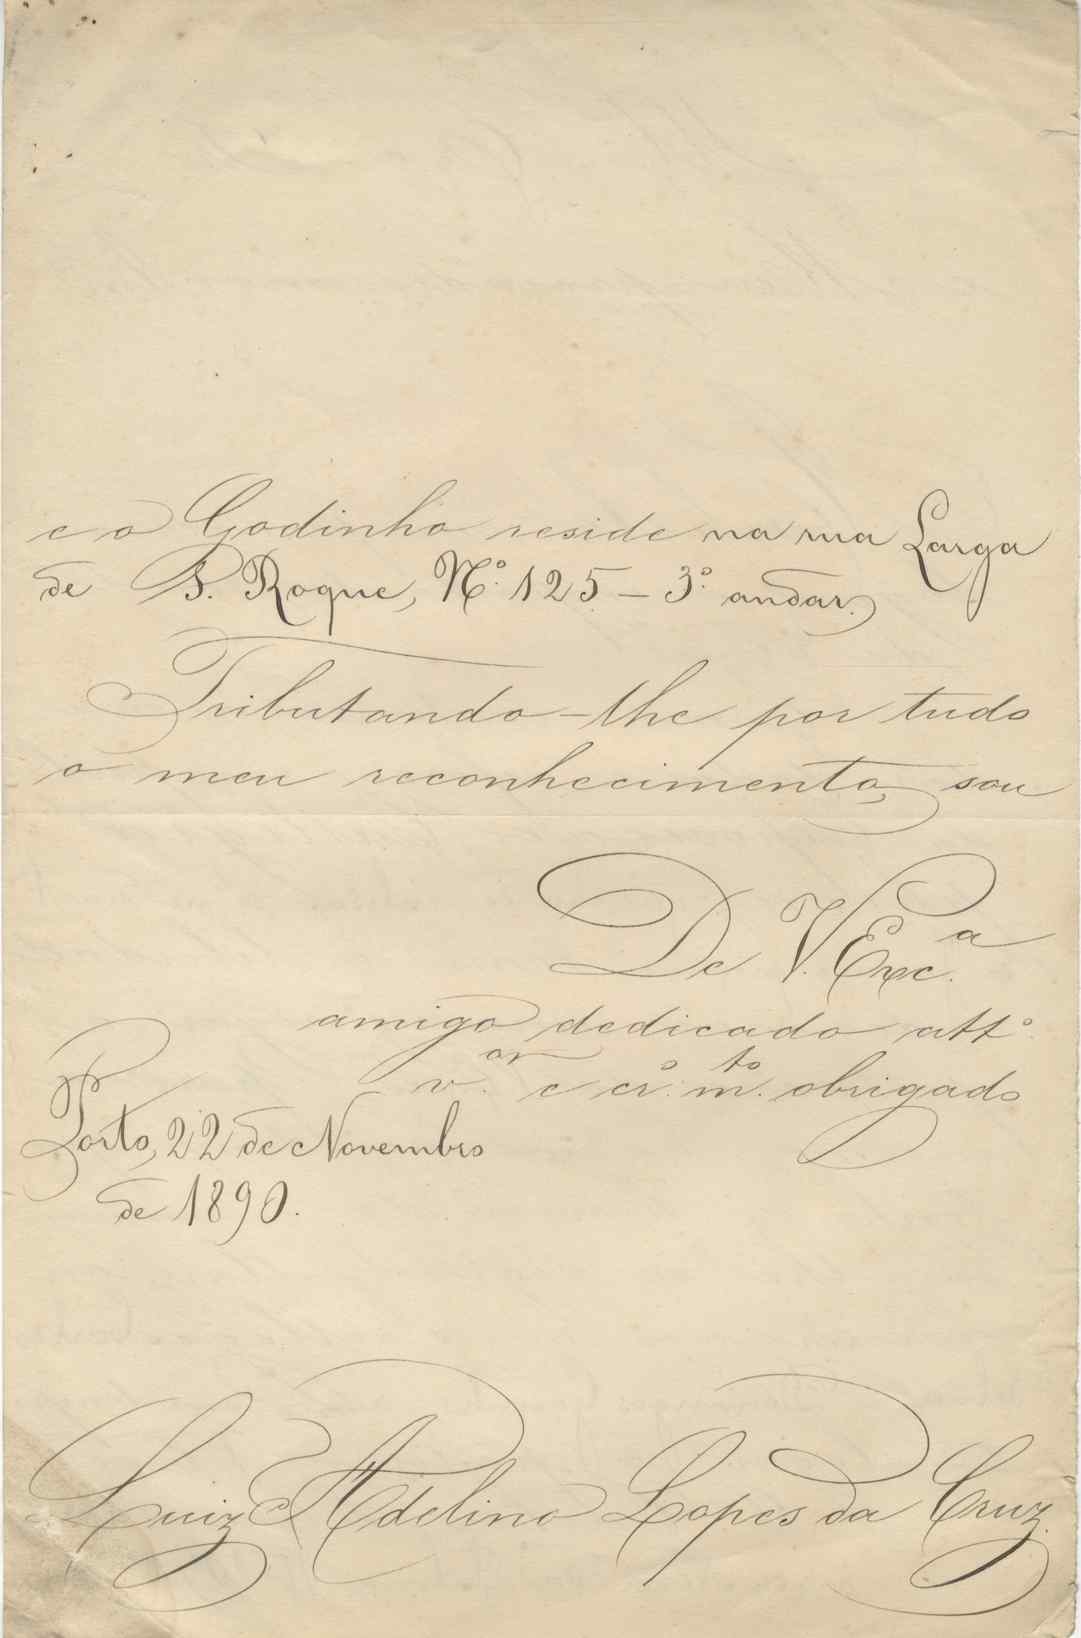 e o Godinho reside na rua Larga
de S. Roque, N.º 125 – 3.º andar.
Tributando-lhe por tudo
o meu reconhecimento, sou
De V. Exc.ª
amigo dedicado att.º
v.or e cr.º m.to obrigado
Porto, 22 de Novembro
de 1890.
Luiz Adelino Lopes da Cruz.